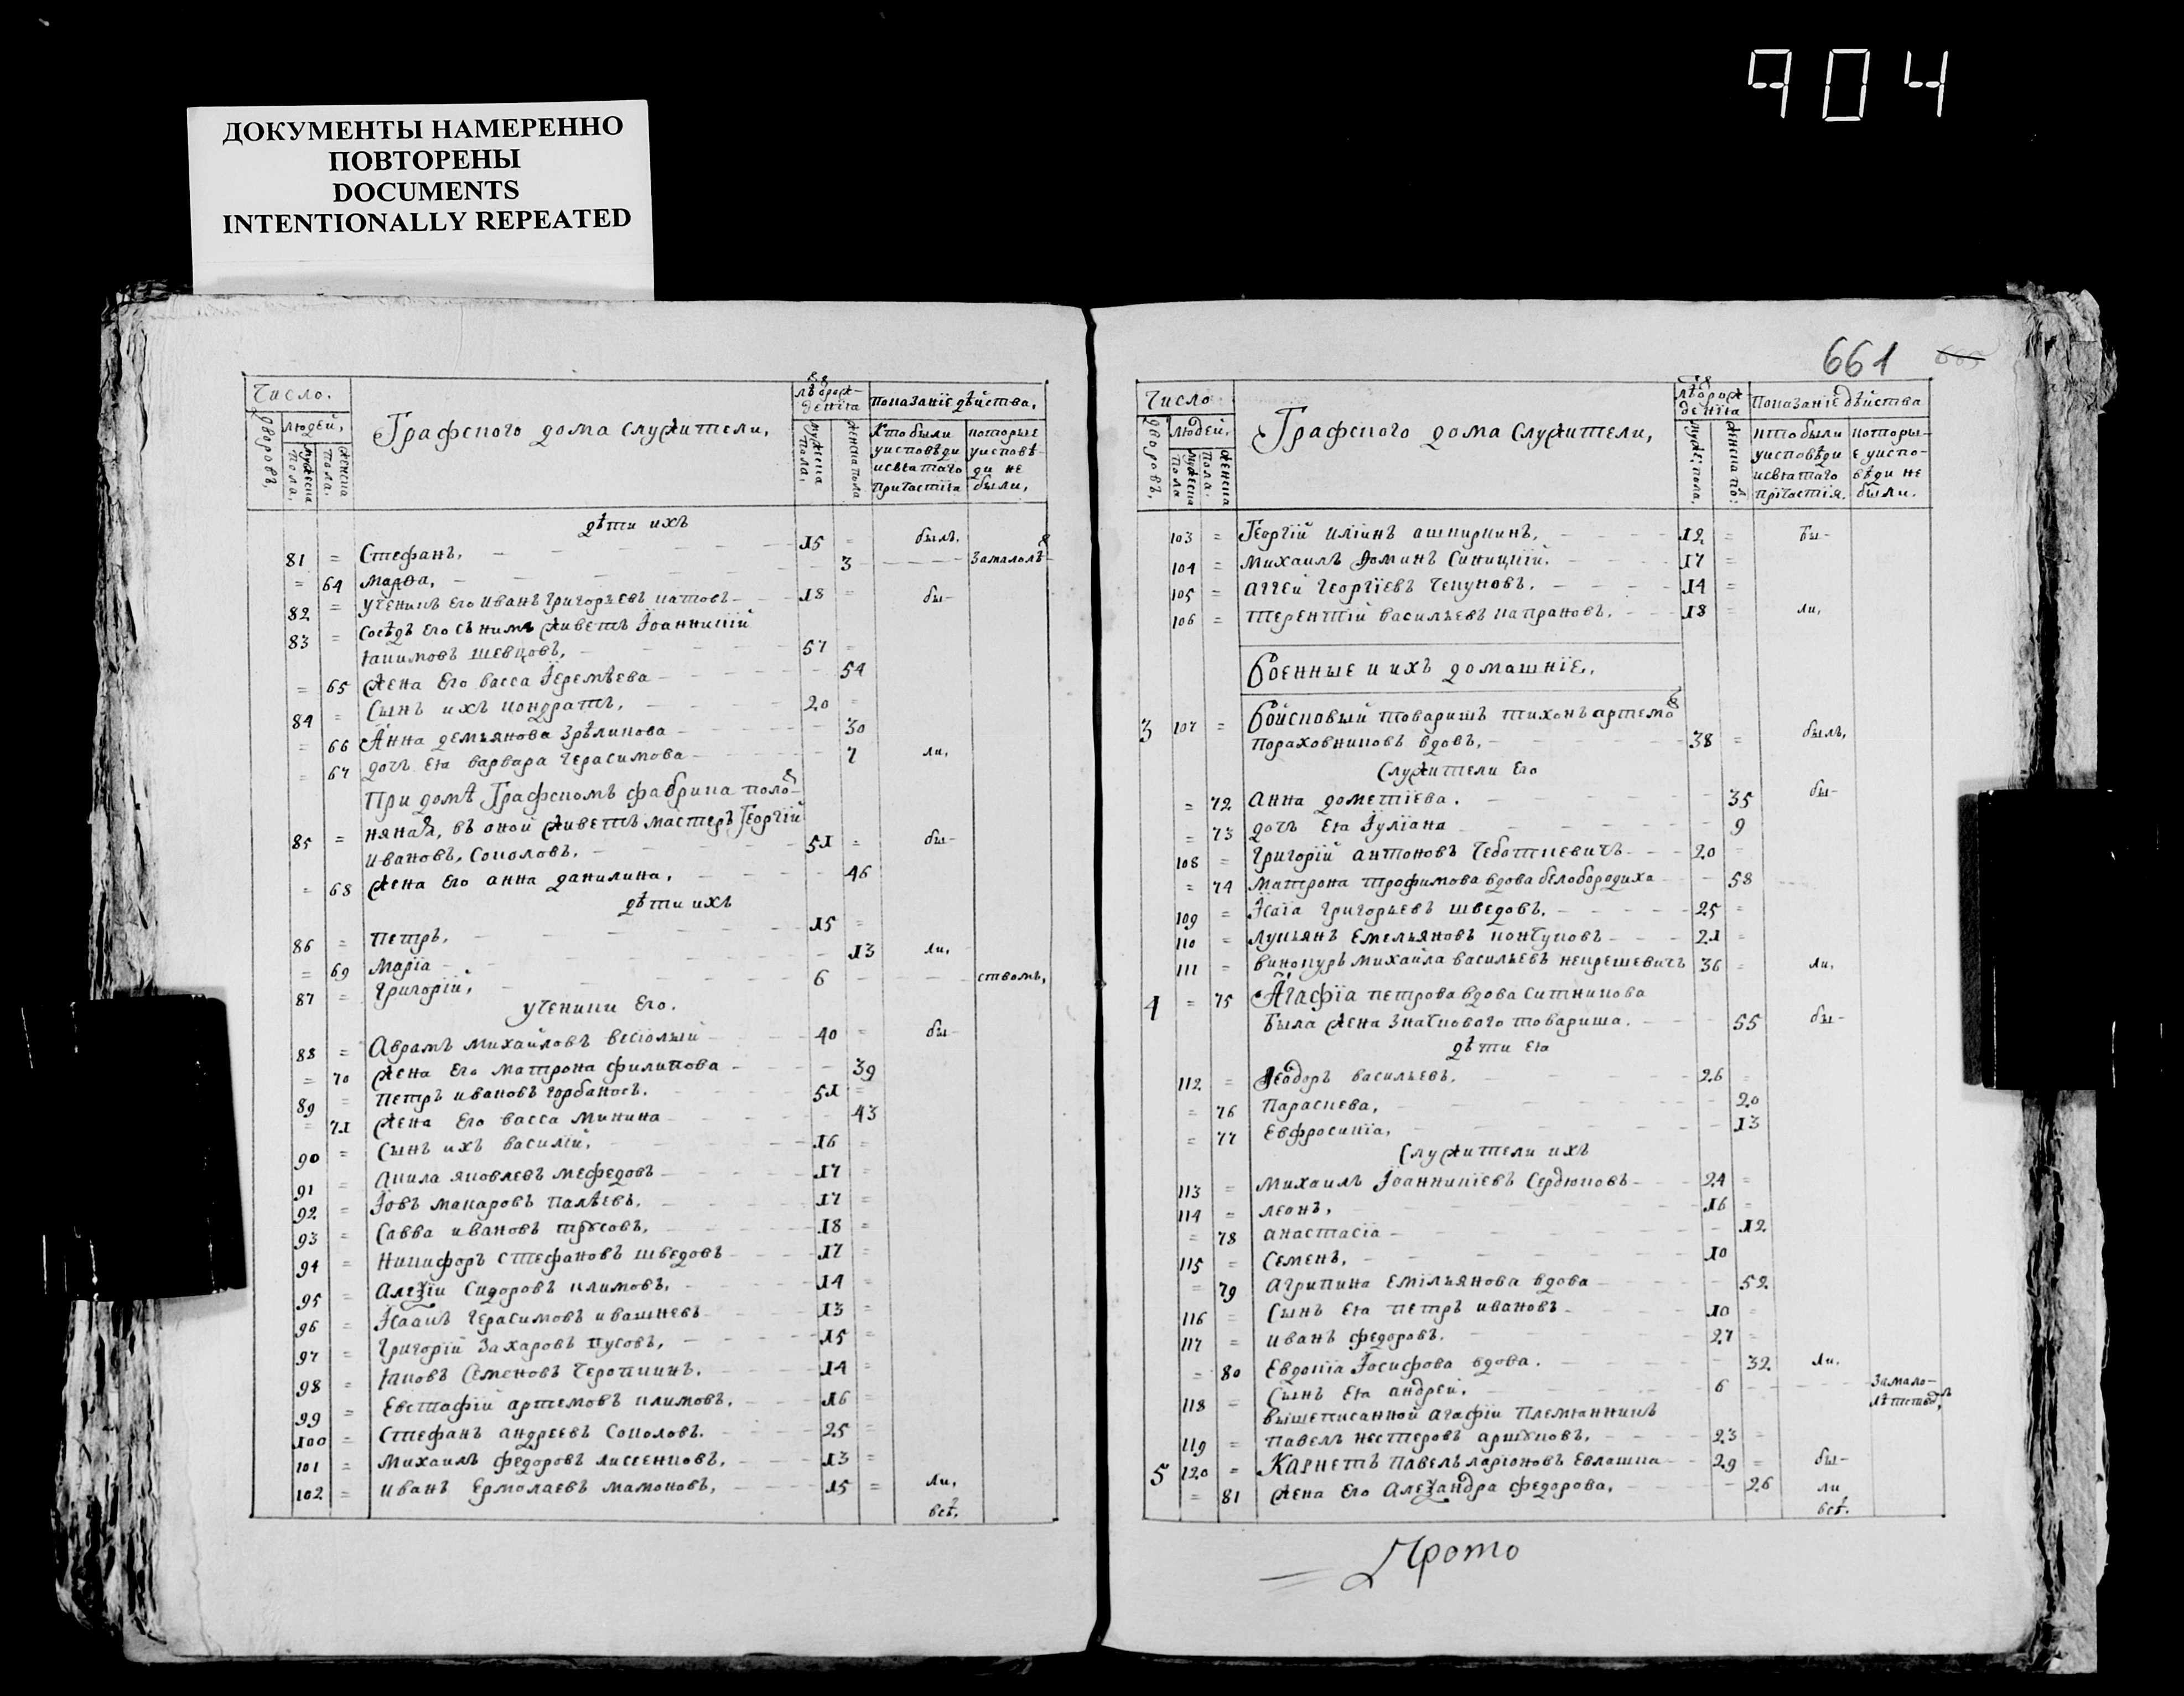 904
ДОКУМЕНТЫ НАМЕРЕННО
ПОВТОРЕНЫ
DOCUMENTS
INTENTIONALLY REPEATED
Число.
Дворовъ.
людей,
мужеска пола.
женска пола.
Графского дома служители,
лѣ рож-
денїѧ
мужеска пола,
женска пола
показанїе дѣиства,
Кто были
у исповѣди
и свѧтаго
причастїѧ
которые
у исповѣ-
ди не
были,
дѣти ихъ
81 = Стефанъ, 15 = былъ.
= 64 марѳа, 3 Замалолѣ-
82 = Ученикъ его иванъ григорьевъ катосъ 18 = бы-
83 = Сосѣдъ его съ нимъ живетъ Іоанникїй
ѧкимовъ шевцовъ, 57 =
= 65 жена его васса Іеремѣева 54
84 = Сынъ ихъ кондратъ, 20 =
= 66 Анна демьянова Зрѣликова 30
= 67 дочь еѧ варвара герасимова 7 ли,
При домѣ Графскомъ фабрика поло-
85 = нянаѧ, въ оной живетъ мастеръ Георгїй
ивановъ, Соколовъ, 51 = бы-
= 68 жена его анна данилина, 46
дѣти ихъ
86 = петръ, 15 =
= 69 марїѧ 13 ли,
87 = григорїй, 6 ствомъ,
ученики его.
88 = Аврамъ михайловъ весіолый 40 = бы-
= 70 жена его матрона филипова 39
89 = петръ ивановъ горбаносъ. 51 =
= 71 жена его васса минина 43
90 = Сынъ ихъ василїй, 16 =
91 = Акила яковлевъ мефедовъ 17 =
92 = Іовъ макаровъ палѣевъ, 17 =
93 = Савва ивановъ трꙋсовъ, 18 =
94 = никифоръ стефановъ шведовъ 17 =
95 = Алеѯїи Сидоровъ климовъ, 14 =
96 = Ісаакъ герасимовъ ивашневъ 13 =
97 = григорїй Захаровъ кусовъ, 15 =
98 = ѧковъ Семеновъ Черопкинъ. 14 =
99 = Евстафїй артемовъ климовъ, 16 =
100 = Стефанъ андреевъ Соколовъ. 25 =
101 = михаилъ федоровъ лисsенковъ, 13 =
102 = иванъ ермолаевъ мамоновъ, 15 = ли,
всѣ,
661
Число
Дворовъ.
людей.
мужеска пола
женска пола.
Графского дома служители,
лѣ рож
денїѧ
муже: пола.
женска по:
Показанїе дѣиства
кто были
у исповѣди
и свѧтаго
причастїя.
которы-
е у испо-
вѣди не
были.
103 = Георгїй илїинъ ашпиркинъ, 12 = бы-
104 = михаилъ Фоминъ Синицкїй. 17 =
105 = аггей георгїевъ Чекуновъ. 14 =
106 = терентїй васильевъ капрановъ. 18 = ли,
Военные и их домашнїе,
3 107 = Войсковый товаришъ тихонъ артемов
пораховниковъ вдовъ, 38 = былъ,
Служители его
= 72 анна дометїева. 35 бы-
= 73 дочь еѧ Іулїана 9
108 = григорїй антоновъ Чеботкевичъ 20 =
= 74 матрона трофимова вдова белобородиха 58
109 = Ісаїа григорьевъ шведовъ, 25 =
110 = лукьянъ емельяновъ кончуковъ 21 =
111 = винокуръ михайла васильевъ некрешевичъ 36 = ли,
4 = 75 Агафїѧ петрова вдова ситникова
была жена Значкового товариша. 55 бы-
дѣти еѧ
112 = Ѳеодоръ васильевъ, 26 =
= 76 параскева, 20
= 77 Евфросинїа, 13
Служители ихъ
113 = михаилъ Іоанникїевъ Сердюковъ 24 =
114 = леонъ, 16 =
= 78 анастасїа 12
115 = Семенъ, 10
= 79 агрипина емільянова вдова 52
116 = Сынъ еѧ петръ ивановъ 10 =
117 = иванъ федоровъ. 27 =
= 80 Евдокїа Іосифова вдова. 32 ли,
118 = Сынъ еѧ андрей, 6 Замало-
лѣтствомъ,
вышеписанной агафїи племѧнникъ
119 = павелъ нестеровъ аршꙋковъ, 23 =
5 120 = Карнетъ павелъ ларіоновъ Евлашка 29 = бы-
= 81 жена его Алеѯандра федорова, 26 ли
всѣ.
Прото